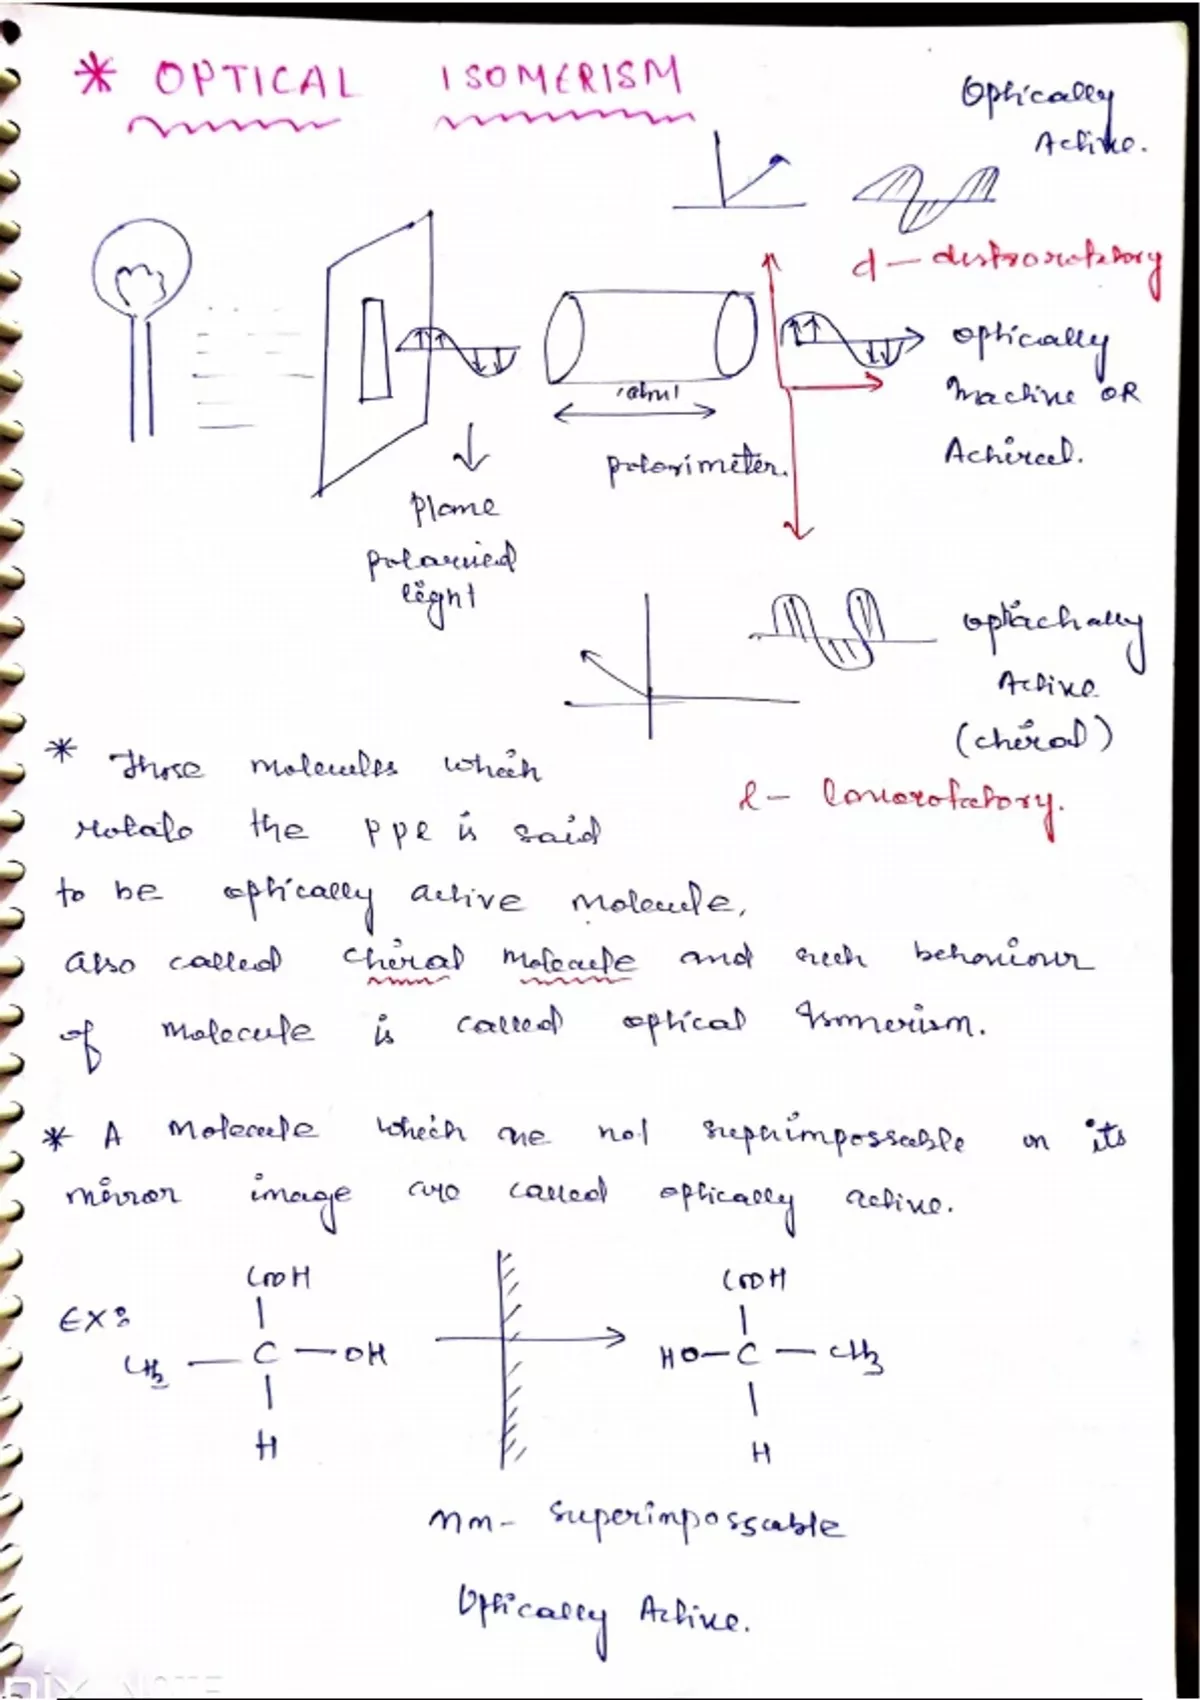 * OPTICAL ISOMERISM
Optically
Active.
d - dextrorotatory
optically
Inactive OR
Achiral.
polarimeter.
plane
polarised
light
optically
Active
(chiral)
l - laevorotatory.
* Those molecules which
rotate the ppl is said
to be optically active molecule,
also called chiral molecule and such behaviour
of molecule is called optical Isomerism.
* A molecule which are not superimpossable on its
mirror image are called optically active.
EX:
COOH
CH3 — C — OH
H
COOH
HO — C — CH3
H
non - superimpossable
Optically Active.